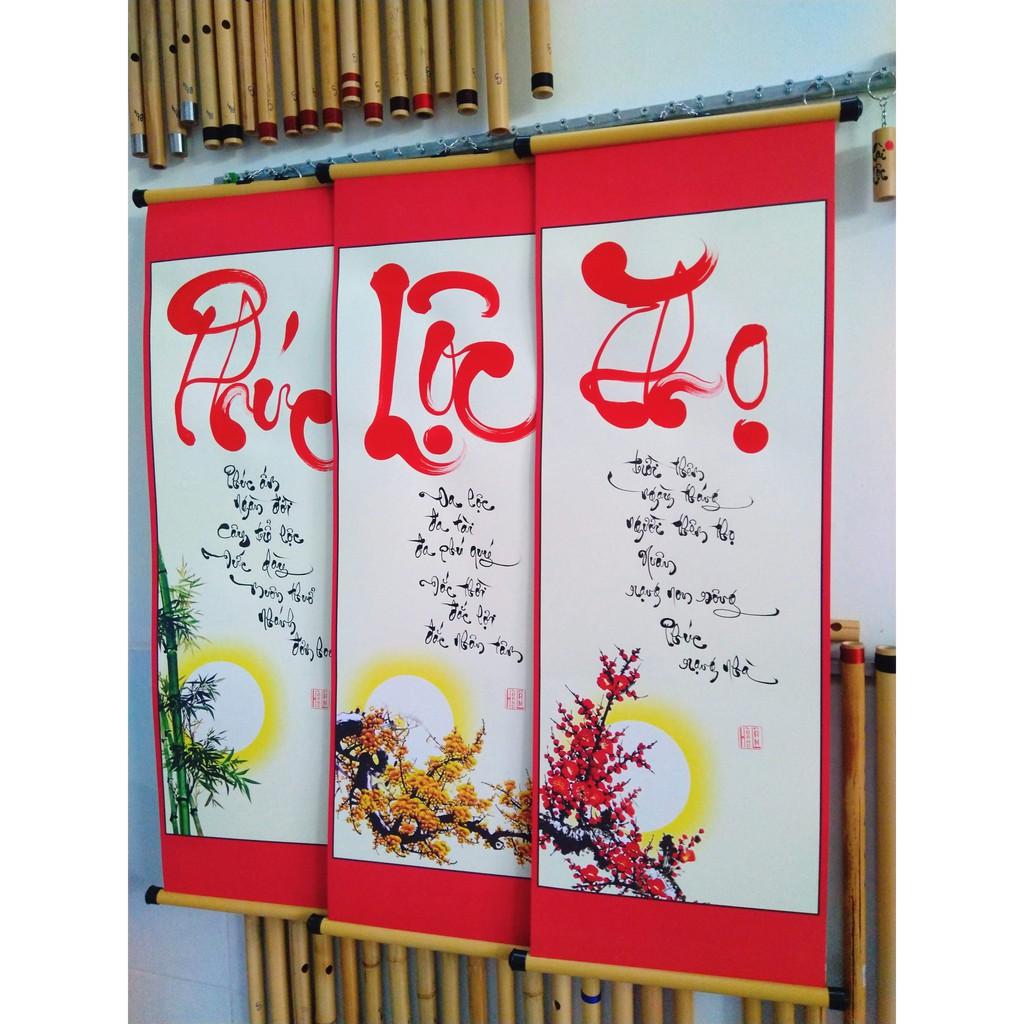 Phúc
Phúc ấm
ngàn đời
Cây tổ lộc
Đức dày
muôn thuở
nhánh
đơm hoa
Lộc
Đa lộc
đa tài
đa phú quý
Đắc thời
đắc lợi
đắc nhân tâm
Thọ
tuổi thêm
ngày tháng
người thêm thọ
Xuân
rạng non sông
Phúc
rạng nhà
Tài
Lộc